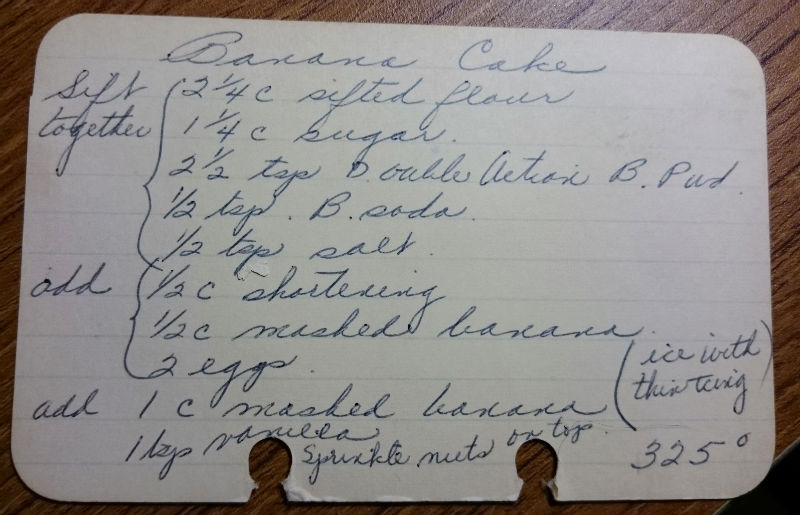 Banana Cake
Sift together
2 1/4 c sifted flour
1 1/4 c sugar.
2 1/2 tsp Double Action B. Pwd.
1/2 tsp. B. soda.
1/2 tsp salt.
add 1/2 c shortening
1/2 c mashed banana.
2 eggs.
add 1 c mashed banana
1 tsp vanilla
Sprinkle nuts on top.
(ice with
thin icing)
325°